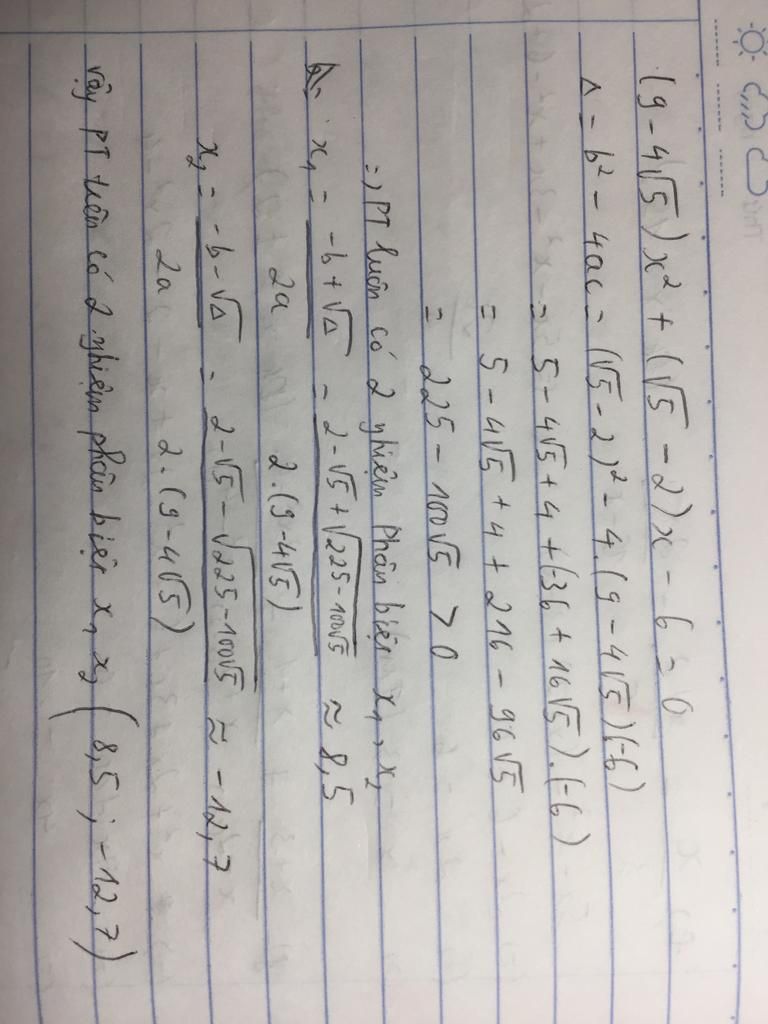 (9 - 4√5)x² + (√5 - 2)x - 6 = 0
Δ = b² - 4ac = (√5 - 2)² - 4.(9 - 4√5)(-6)
= 5 - 4√5 + 4 + (-36 + 16√5).(-6)
= 5 - 4√5 + 4 + 216 - 96√5
= 225 - 100√5 > 0
=> PT luôn có 2 nghiệm phân biệt x₁, x₂
x₁ = (-b + √Δ)/2a = (2 - √5 + √(225 - 100√5))/(2.(9 - 4√5)) ≈ 8,5
x₂ = (-b - √Δ)/2a = (2 - √5 - √(225 - 100√5))/(2.(9 - 4√5)) ≈ -12,7
Vậy PT trên có 2 nghiệm phân biệt x₁ x₂ (8,5 ; -12,7)